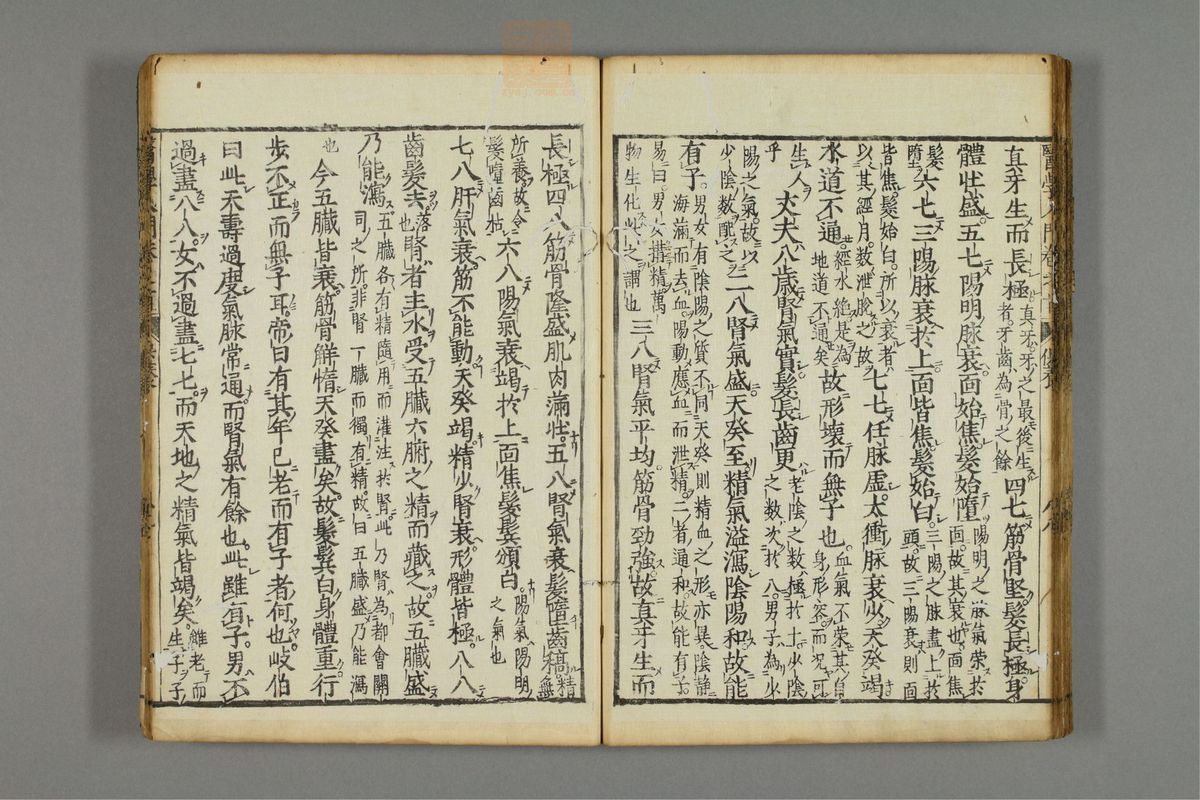 真牙生而長極真牙牙之最後生者牙齒為骨之餘四七筋骨堅髮長極身
體壯盛五七陽明脉衰面始焦髮始墮陽明之脉氣榮於面故其衰也面焦
髮墮六七三陽脉衰於上面皆焦髮始白三陽之脉盡上於頭故三陽衰則面
皆焦髮始白所以衰者以其經月数泄脫之故七七任脉虚太衝脉衰少天癸竭
水道不通經水絕是為地道不通矣故形壞而無子也血氣不榮其身形容而
生人乎丈夫八歲腎氣實髮長齒更老陰之数極於十少陰之数次於八男子為少
陽之氣故以少陰数配之二八腎氣盛天癸至精氣溢瀉陰陽和故能
有子男女有陰陽之質不同天癸則精血之形亦異陰静海滿而去血陽動應血而泄精二者通和故能有子
易曰男女搆精萬物生化此之謂也三八腎氣平均筋骨勁強故真牙生而
長極四八筋骨隆盛肌肉滿壯五八腎氣衰髮墮齒稿精無
所養故令髮墮齒枯六八陽氣衰竭於上面焦髮鬢頒白陽氣陽明之氣也
七八肝氣衰筋不能動天癸竭精少腎衰形體皆極八八
齒髮去落也腎者主水受五臟六腑之精而藏之故五臟盛
乃能瀉五臟各有精隨用而灌注於腎此乃腎為都會關司之所非腎一臟而獨有精故曰五臟盛乃能瀉
也今五臟皆衰筋骨觧惰天癸盡矣故髮鬢白身體重行
步不正而無子耳帝曰有其年已老而有子者何也岐伯
曰此天壽過度氣脉常通而腎氣有餘也此雖有子男不
過盡八八女不過盡七七而天地之精氣皆竭矣雖老而生子子